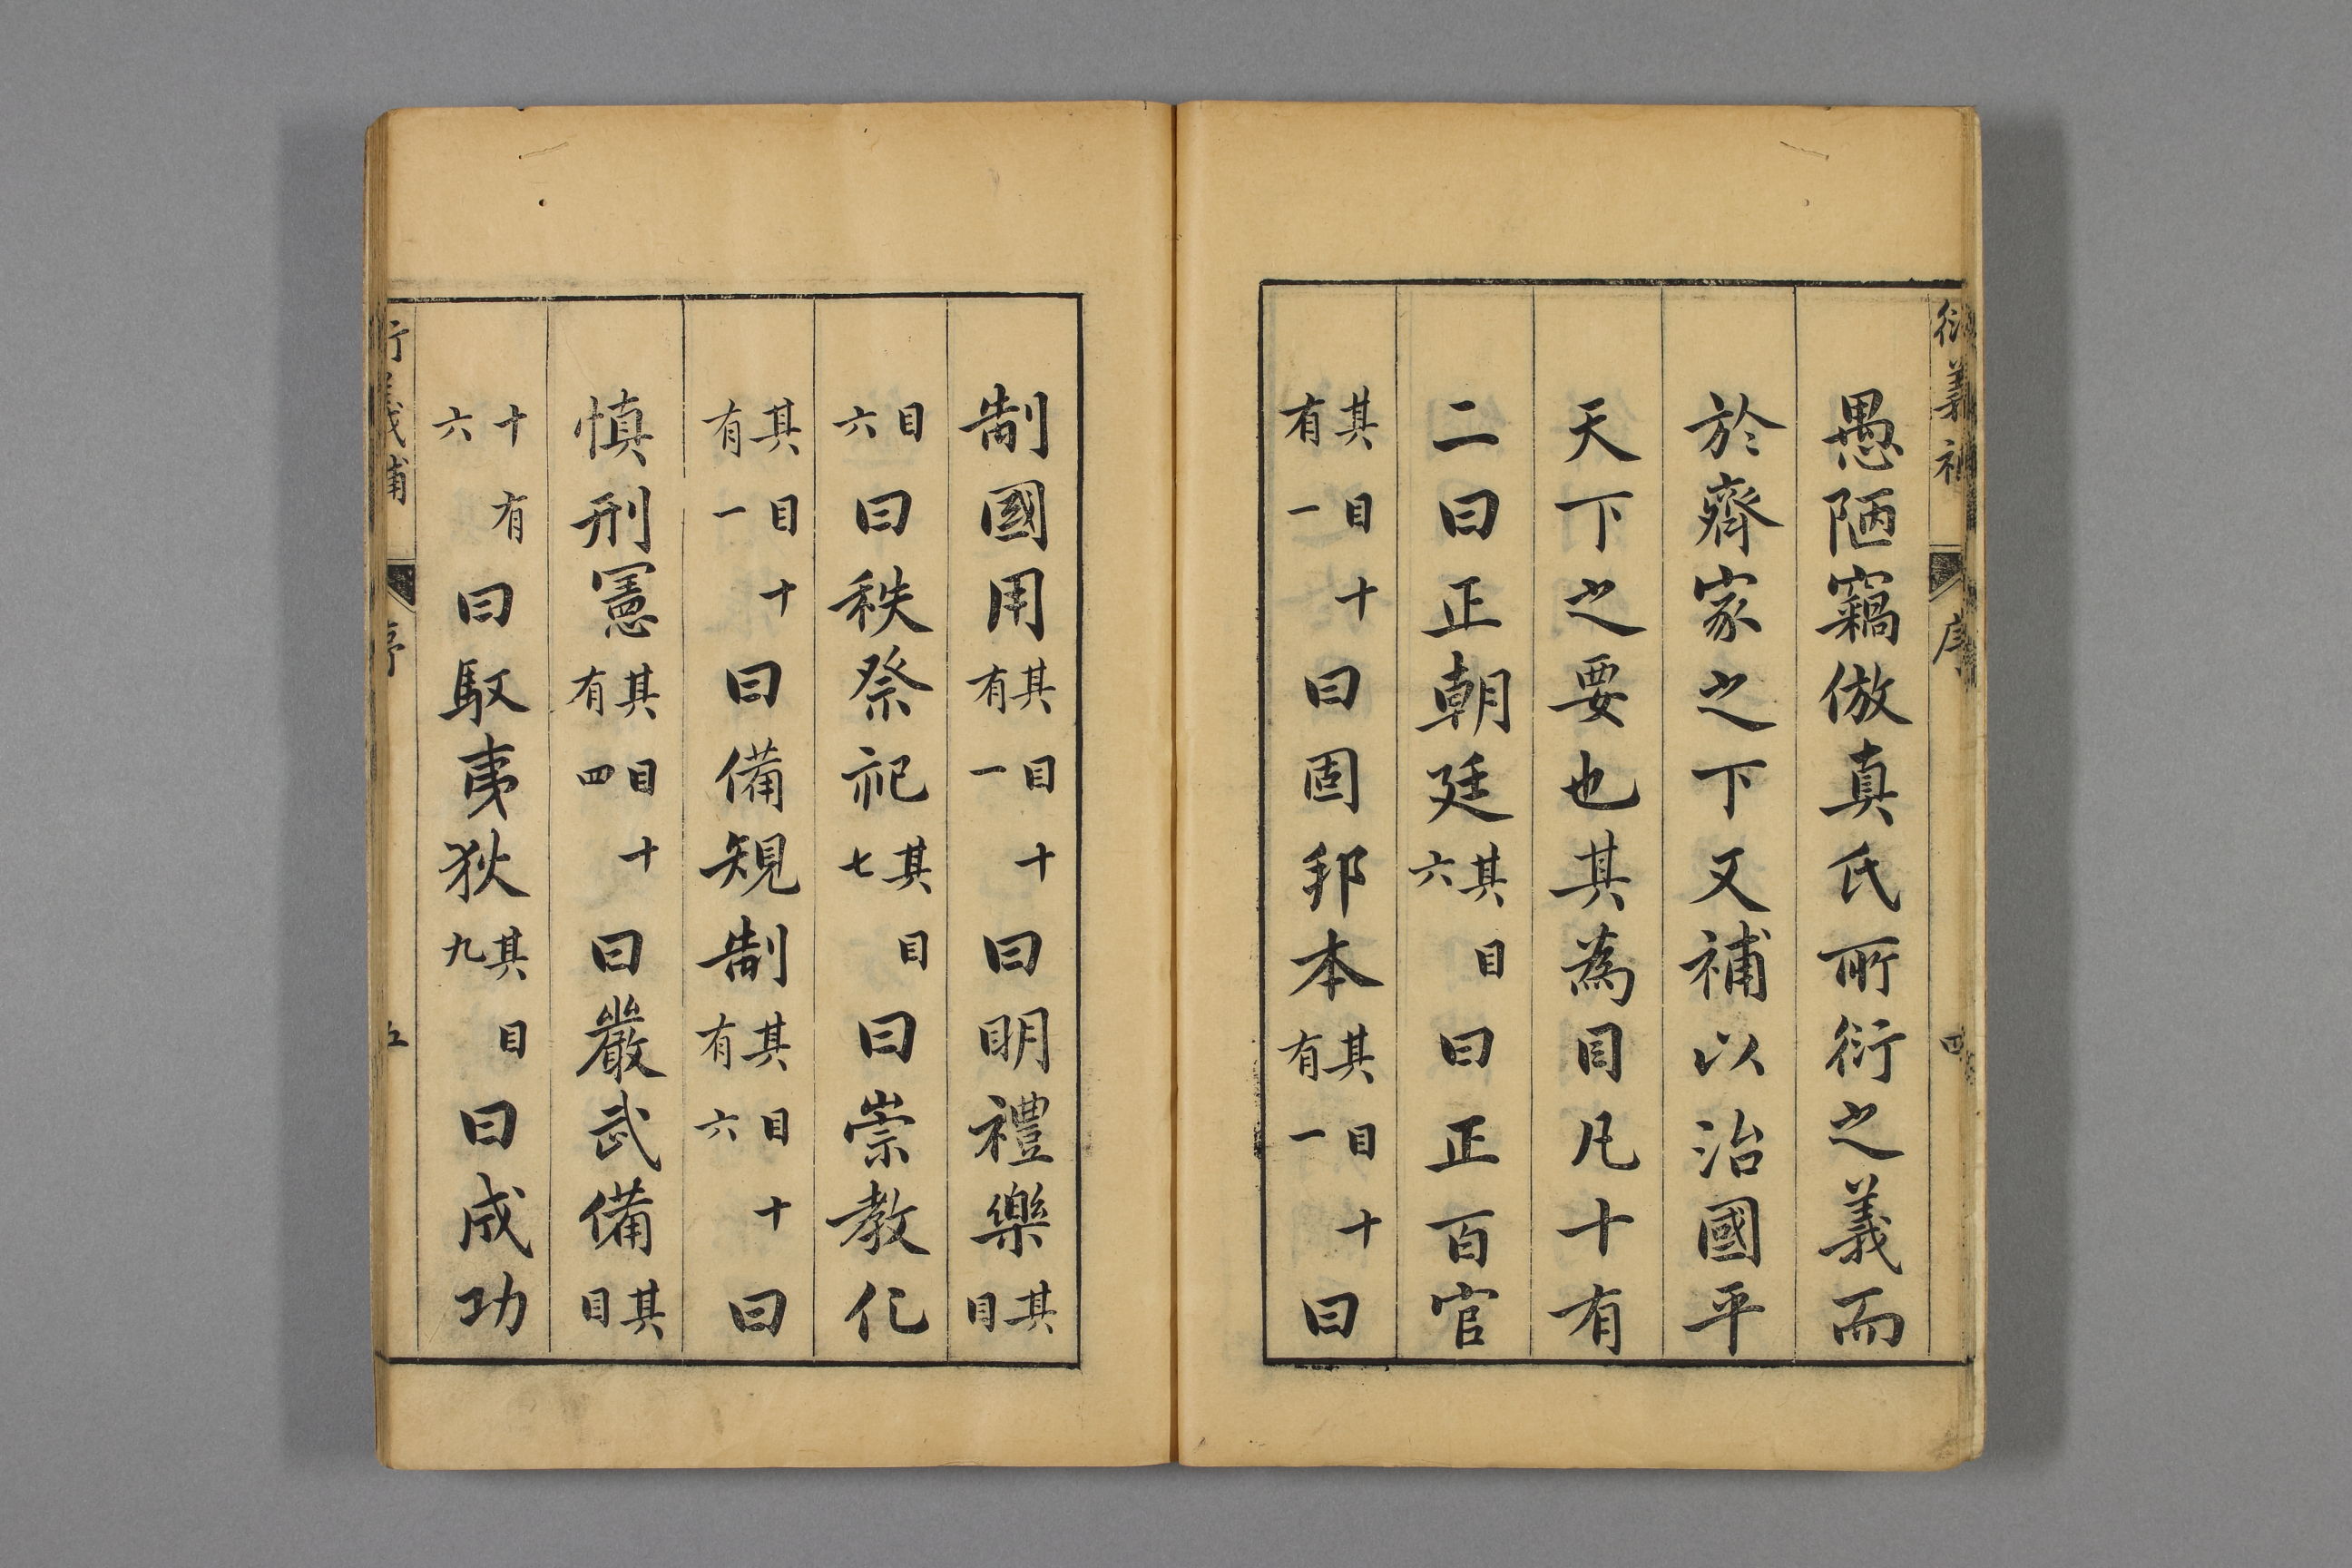 衍義補 序 四
愚陋竊倣真氏所衍之義而
於齊家之下又補以治國平
天下之要也其為目凡十有
二曰正朝廷其目六曰正百官
其目十有一曰固邦本其目十有一曰
制國用其目十有一曰明禮樂其目
目六曰秩祭祀其目七曰崇教化
其目十有一曰備規制其目十有六曰
慎刑憲其目十有四曰嚴武備其目
十有六曰馭夷狄其目九曰成功
衍義補 序 五